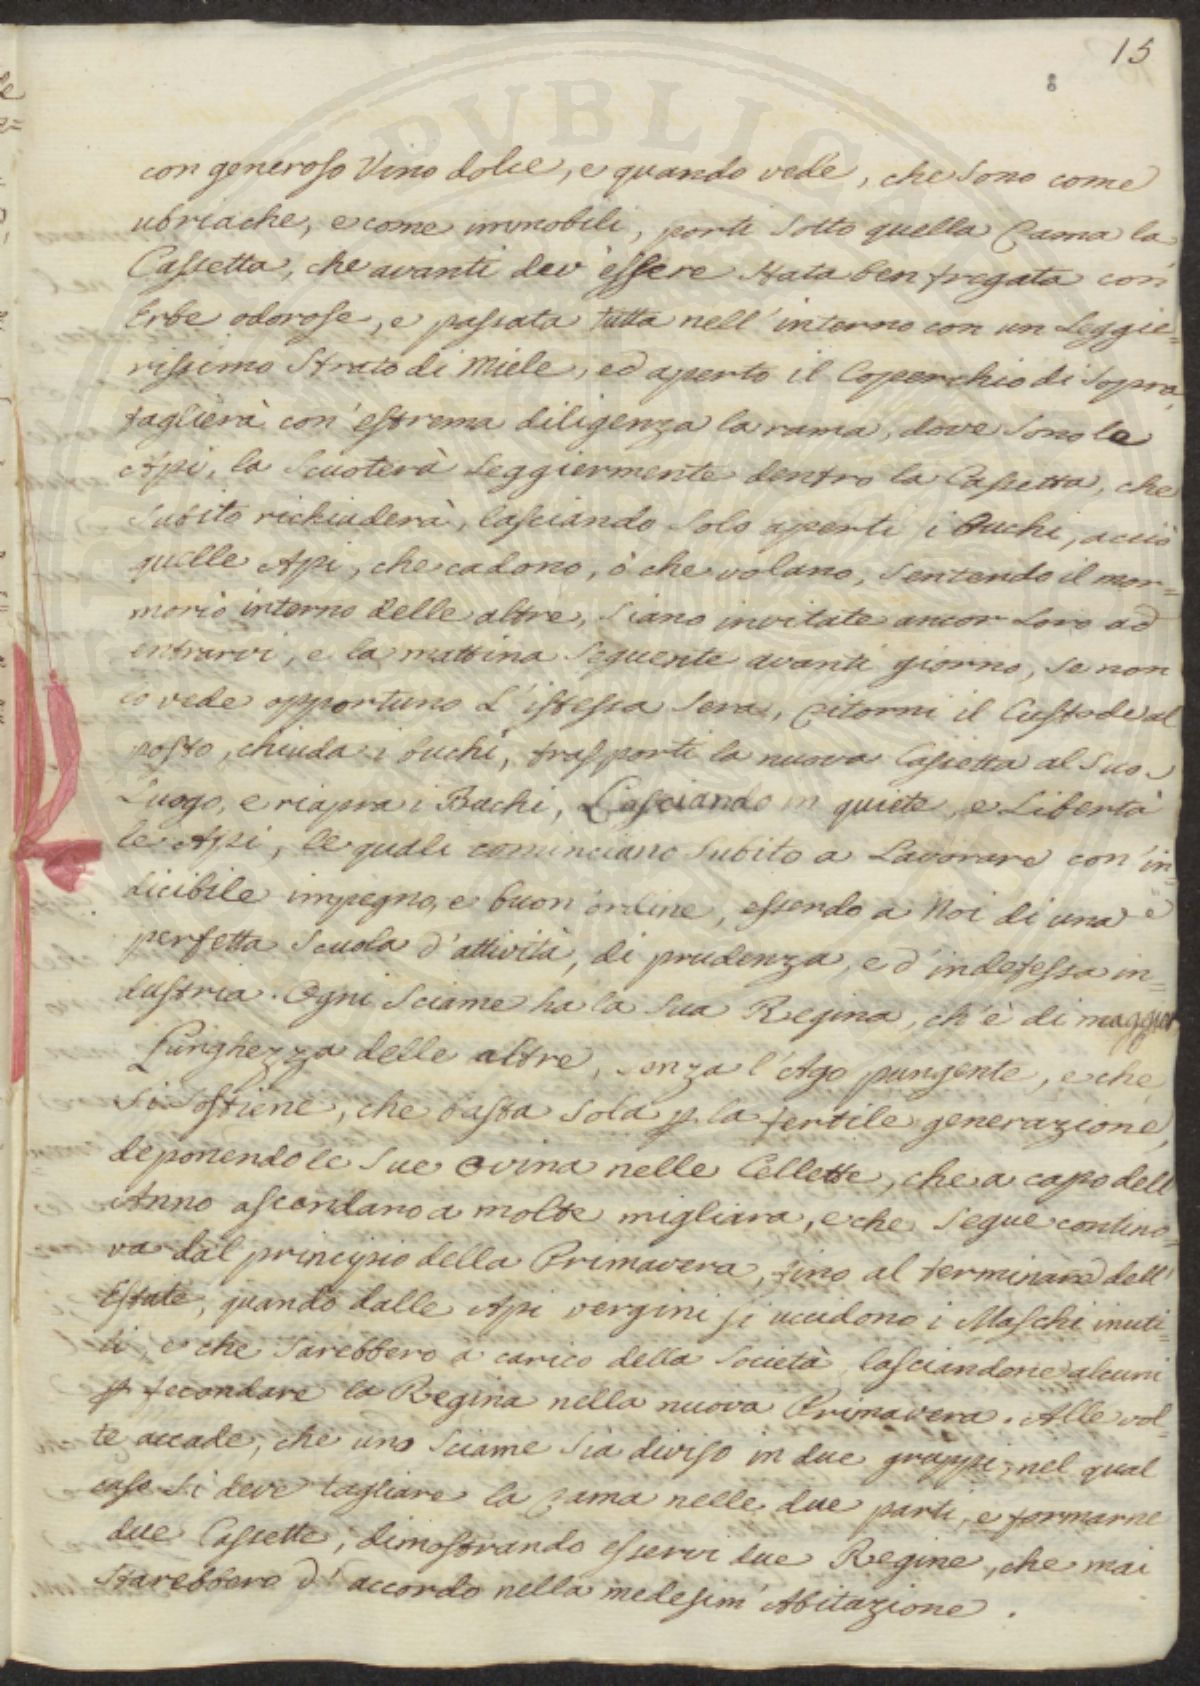 15
con generoso Vino dolce, e quando vede, che sono come
ubriache, e come immobili, porti sotto quella Rama la
Cassetta, che avanti dev'essere stata ben fregata con
Erbe odorose, e passata tutta nell'interno con un Leggie=
rissimo Strato di Miele, ed aperto il Coperchio di sopra,
taglierà con'estrema diligenza la rama, dove sono le
Api, la scuoterà Leggiermente dentro la Cassetta, che
subito richiuderà, lasciando solo aperti i Buchi, acciò
quelle Api, che cadono, ò che volano, sentendo il mor=
morio interno delle altre, siano invitate ancor Loro ad
entrarvi, e la mattina seguente avanti giorno, se non
lo vede opportuno L'istessa sera, ritorni il Custode al
posto, chiuda i buchi, trasporti la nuova Cassetta al suo
Luogo, e riapra i Buchi, Lasciando in quiete, e Libertà
le Api, le quali cominciano subito a Lavorare con'in=
dicibile impegno, e buon'ordine, essendo a Noi di una
perfetta Scuola d'attività, di prudenza, e d'indefessa in=
dustria. Ogni Sciame ha la sua Regina, ch'è di maggior
Lunghezza delle altre, senza l'Ago pungente, e che
si sostiene, che basta sola p la fertile generazione,
deponendo le sue Ovina nelle Cellette, che a capo dell'
Anno ascendano a molte migliara, e che segue contino=
va dal principio della Primavera, fino al terminare dell'
Estate, quando dalle Api vergini si uccidono i Maschi inuti=
li, e che sarebbero a carico della Società, lasciandone alcuni
p fecondare la Regina nella nuova Primavera. Alle vol=
te accade, che uno Sciame sia diviso in due grappi, nel qual
caso si deve tagliare la rama nelle due parti, e formarne
due Cassette, dimostrando esservi due Regine, che mai
starebbero d'accordo nella medesim'Abitazione.
PUBLICA